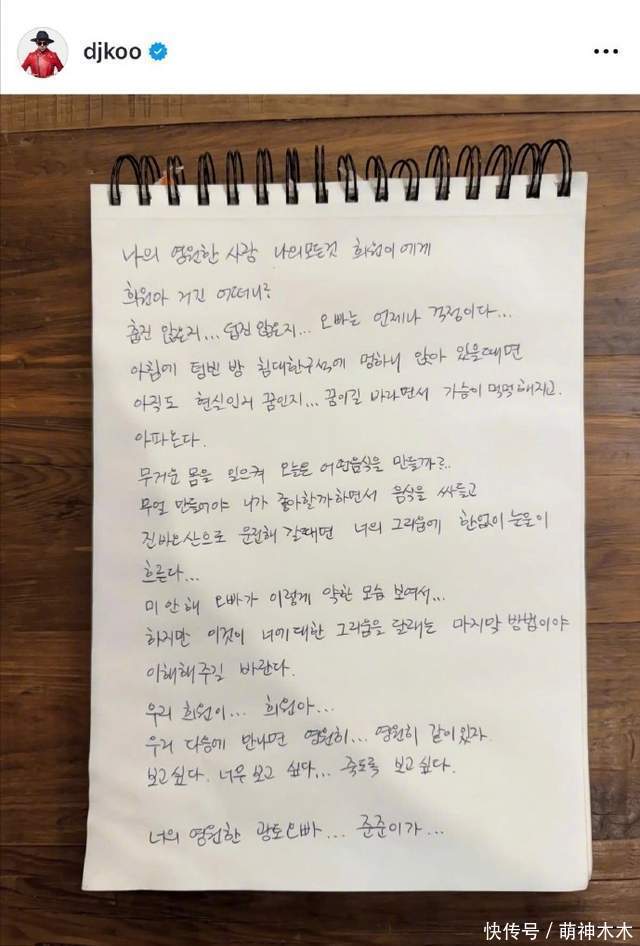 djkoo
나의 영원한 사랑 나의모든것 희원이에게
희원아 거긴 어떠니?
춥진 않은지... 덥진 않은지... 오빠는 언제나 걱정이다...
아침에 텅빈 방 침대한구석에 멍하니 앉아 있을때면
아직도 현실인지 꿈인지... 꿈이길 바라면서 가슴이 먹먹해지고.
아파온다.
무거운 몸을 일으켜 오늘은 어떤음식을 만들까?..
무얼 만들어야 니가 좋아할까하면서 음식을 싸들고
진바오산으로 운전해 갈때면 너의 그리움에 한없이 눈물이
흐른다...
미안해 오빠가 이렇게 약한 모습 보여서...
하지만 이것이 너에대한 그리움을 달래는 마지막 방법이야
이해해주길 바란다.
우리 희원이... 희원아...
우리 다음에 만나면 영원히... 영원히 같이있자.
보고싶다. 너무 보고 싶다... 죽도록 보고싶다.
너의 영원한 광토오빠... 준준이가...
快传号 / 萌神木木